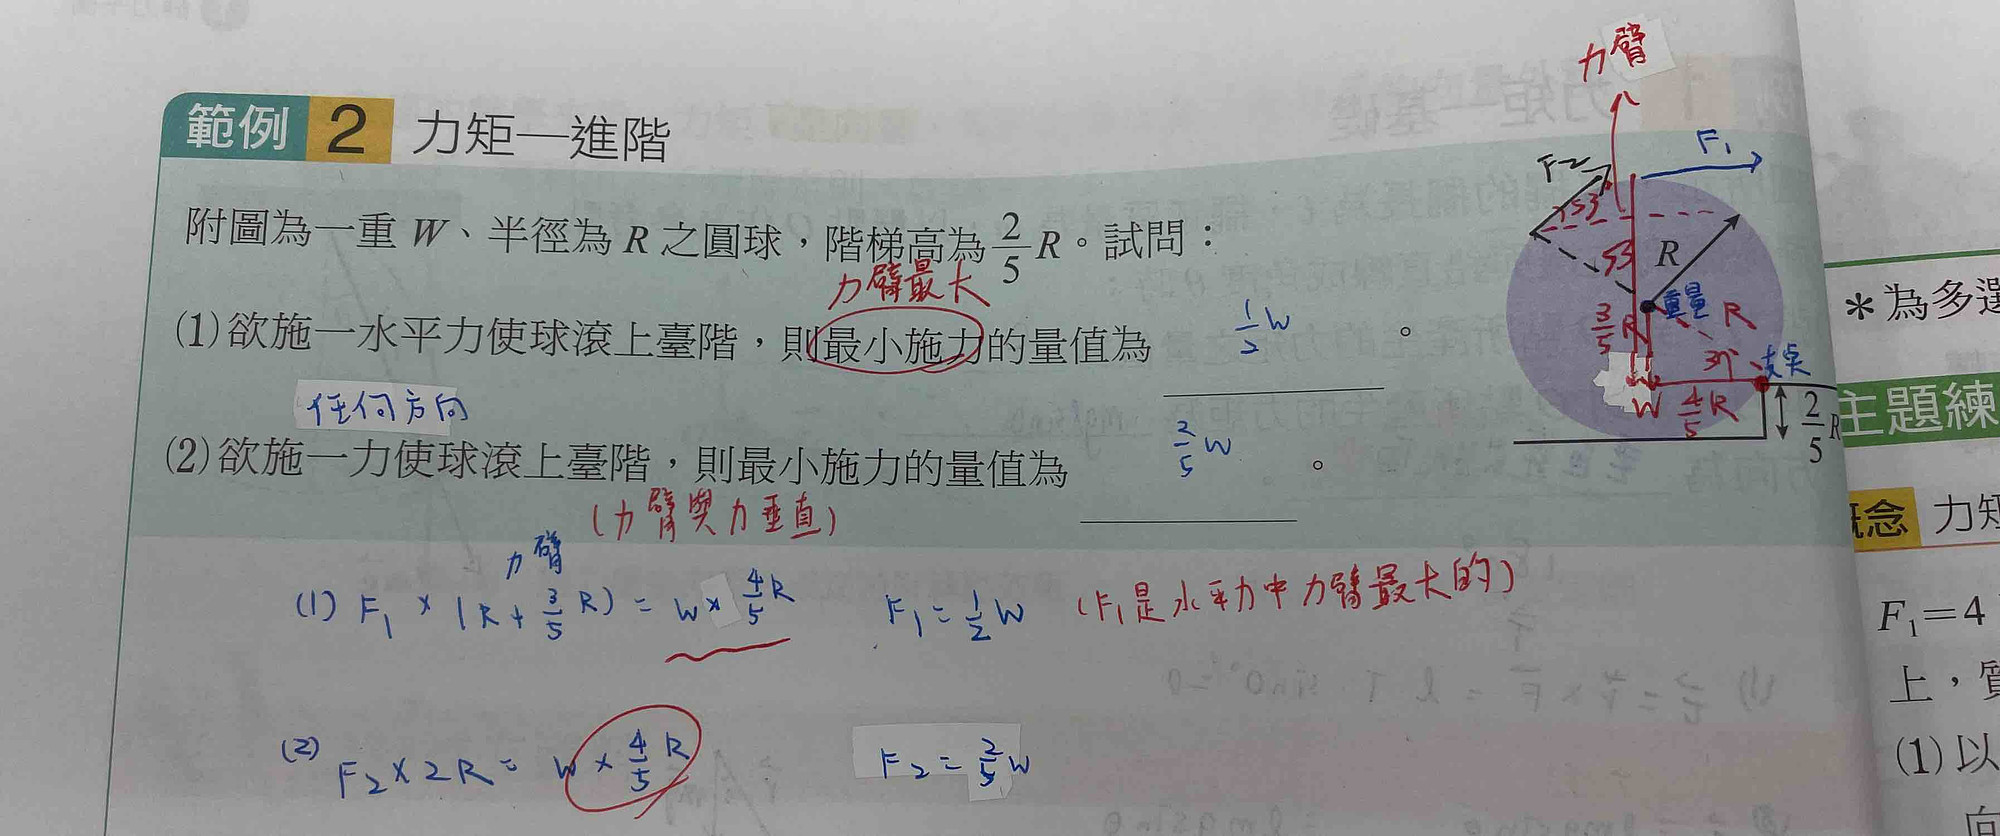 範例 2 力矩—進階
附圖為一重 W、半徑為 R 之圓球，階梯高為 2/5 R。試問：
力臂最大
(1)欲施一水平力使球滾上臺階，則最小施力的量值為 1/2 W 。
任何方向
(2)欲施一力使球滾上臺階，則最小施力的量值為 2/5 W 。
(力臂與力垂直)
力臂
(1) F₁ × (R + 3/5 R) = W × 4/5 R F₁ = 1/2 W (F₁是水平力中力臂最大的)
(2) F₂ × 2R = W × 4/5 R F₂ = 2/5 W
力臂
F₁
F₂
53°
53
R
重量
3/5 R
R
支點
W
4/5 R
2/5 R
＊為多選
主題練
概念 力矩
F₁＝4
上，質
(1)以
向